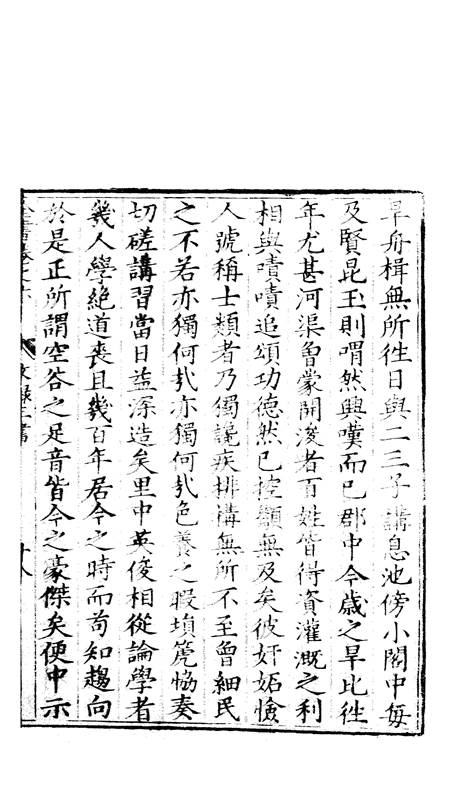 旱舟楫無所徃日與二三子講息池傍小閣中每
及賢昆玉則喟然興嘆而已郡中今歲之旱比徃
年尤甚河渠魯蒙開浚者百姓皆得資灌溉之利
相與嘖嘖追頌功德然已控籲無及矣彼奸妬憸
人號稱士類者乃獨讒疾排搆無所不至曾細民
之不若亦獨何㢤亦獨何㢤色養之暇塤箎恊奏
切磋講習當日益深造矣里中英俊相從論學者
幾人學絶道喪且幾百年居今之時而苟知趨向
於是正所謂空谷之足音皆今之豪傑矣便中示
文録三書
十八